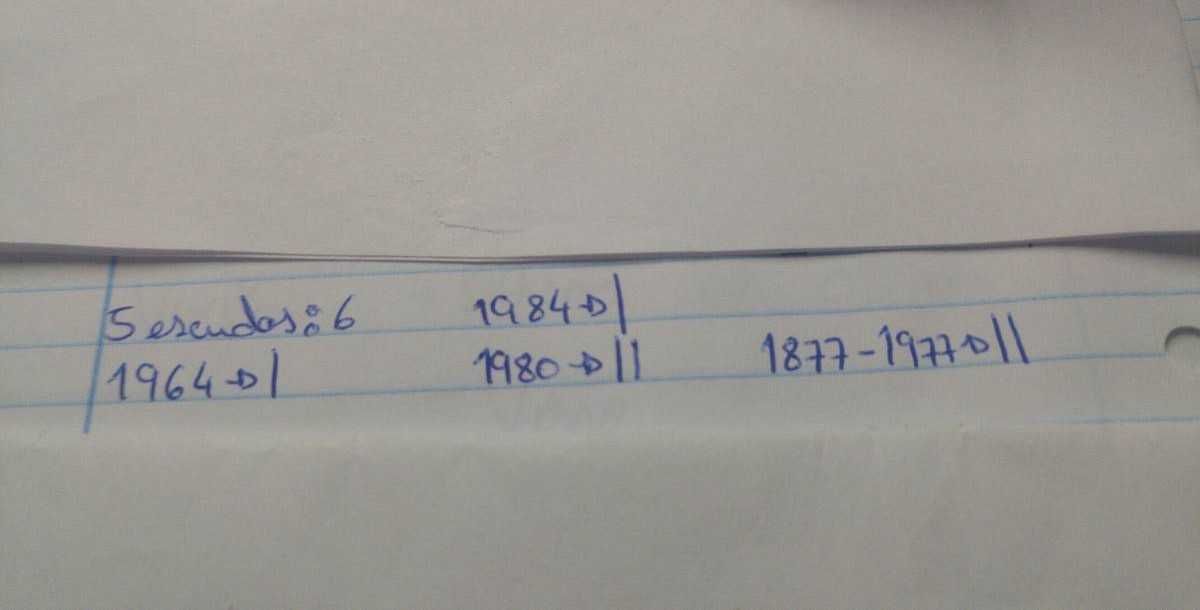 5 escudos: 6 1984→|
1964→| 1980→|| 1877-1977→||